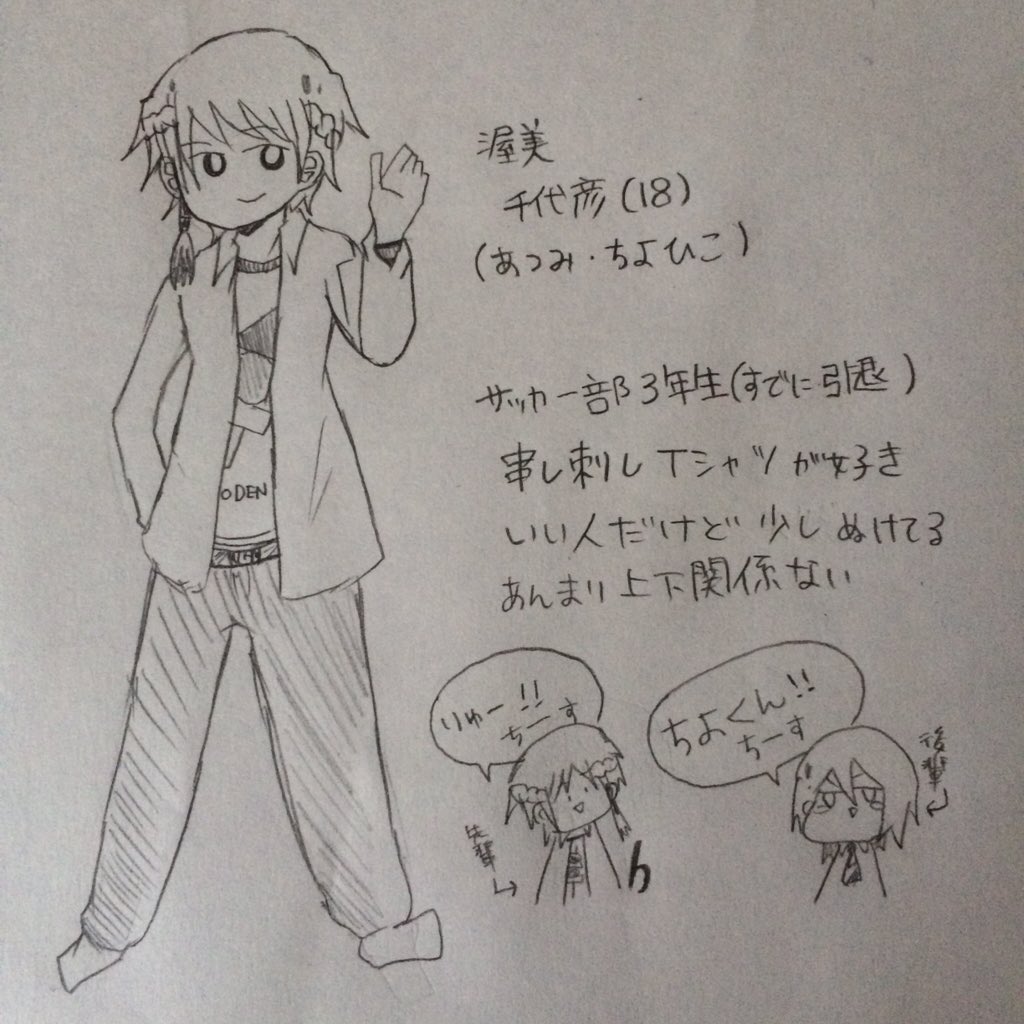 渥美
千代彦(18)
(あつみ・ちよひこ)
サッカー部3年生(すでに引退)
串し刺しTシャツが好き
いい人だけど少しぬけてる
あんまり上下関係ない
ODEN
りゅー!!
ちーす
ちよくん!!
ちーす
先輩
後輩